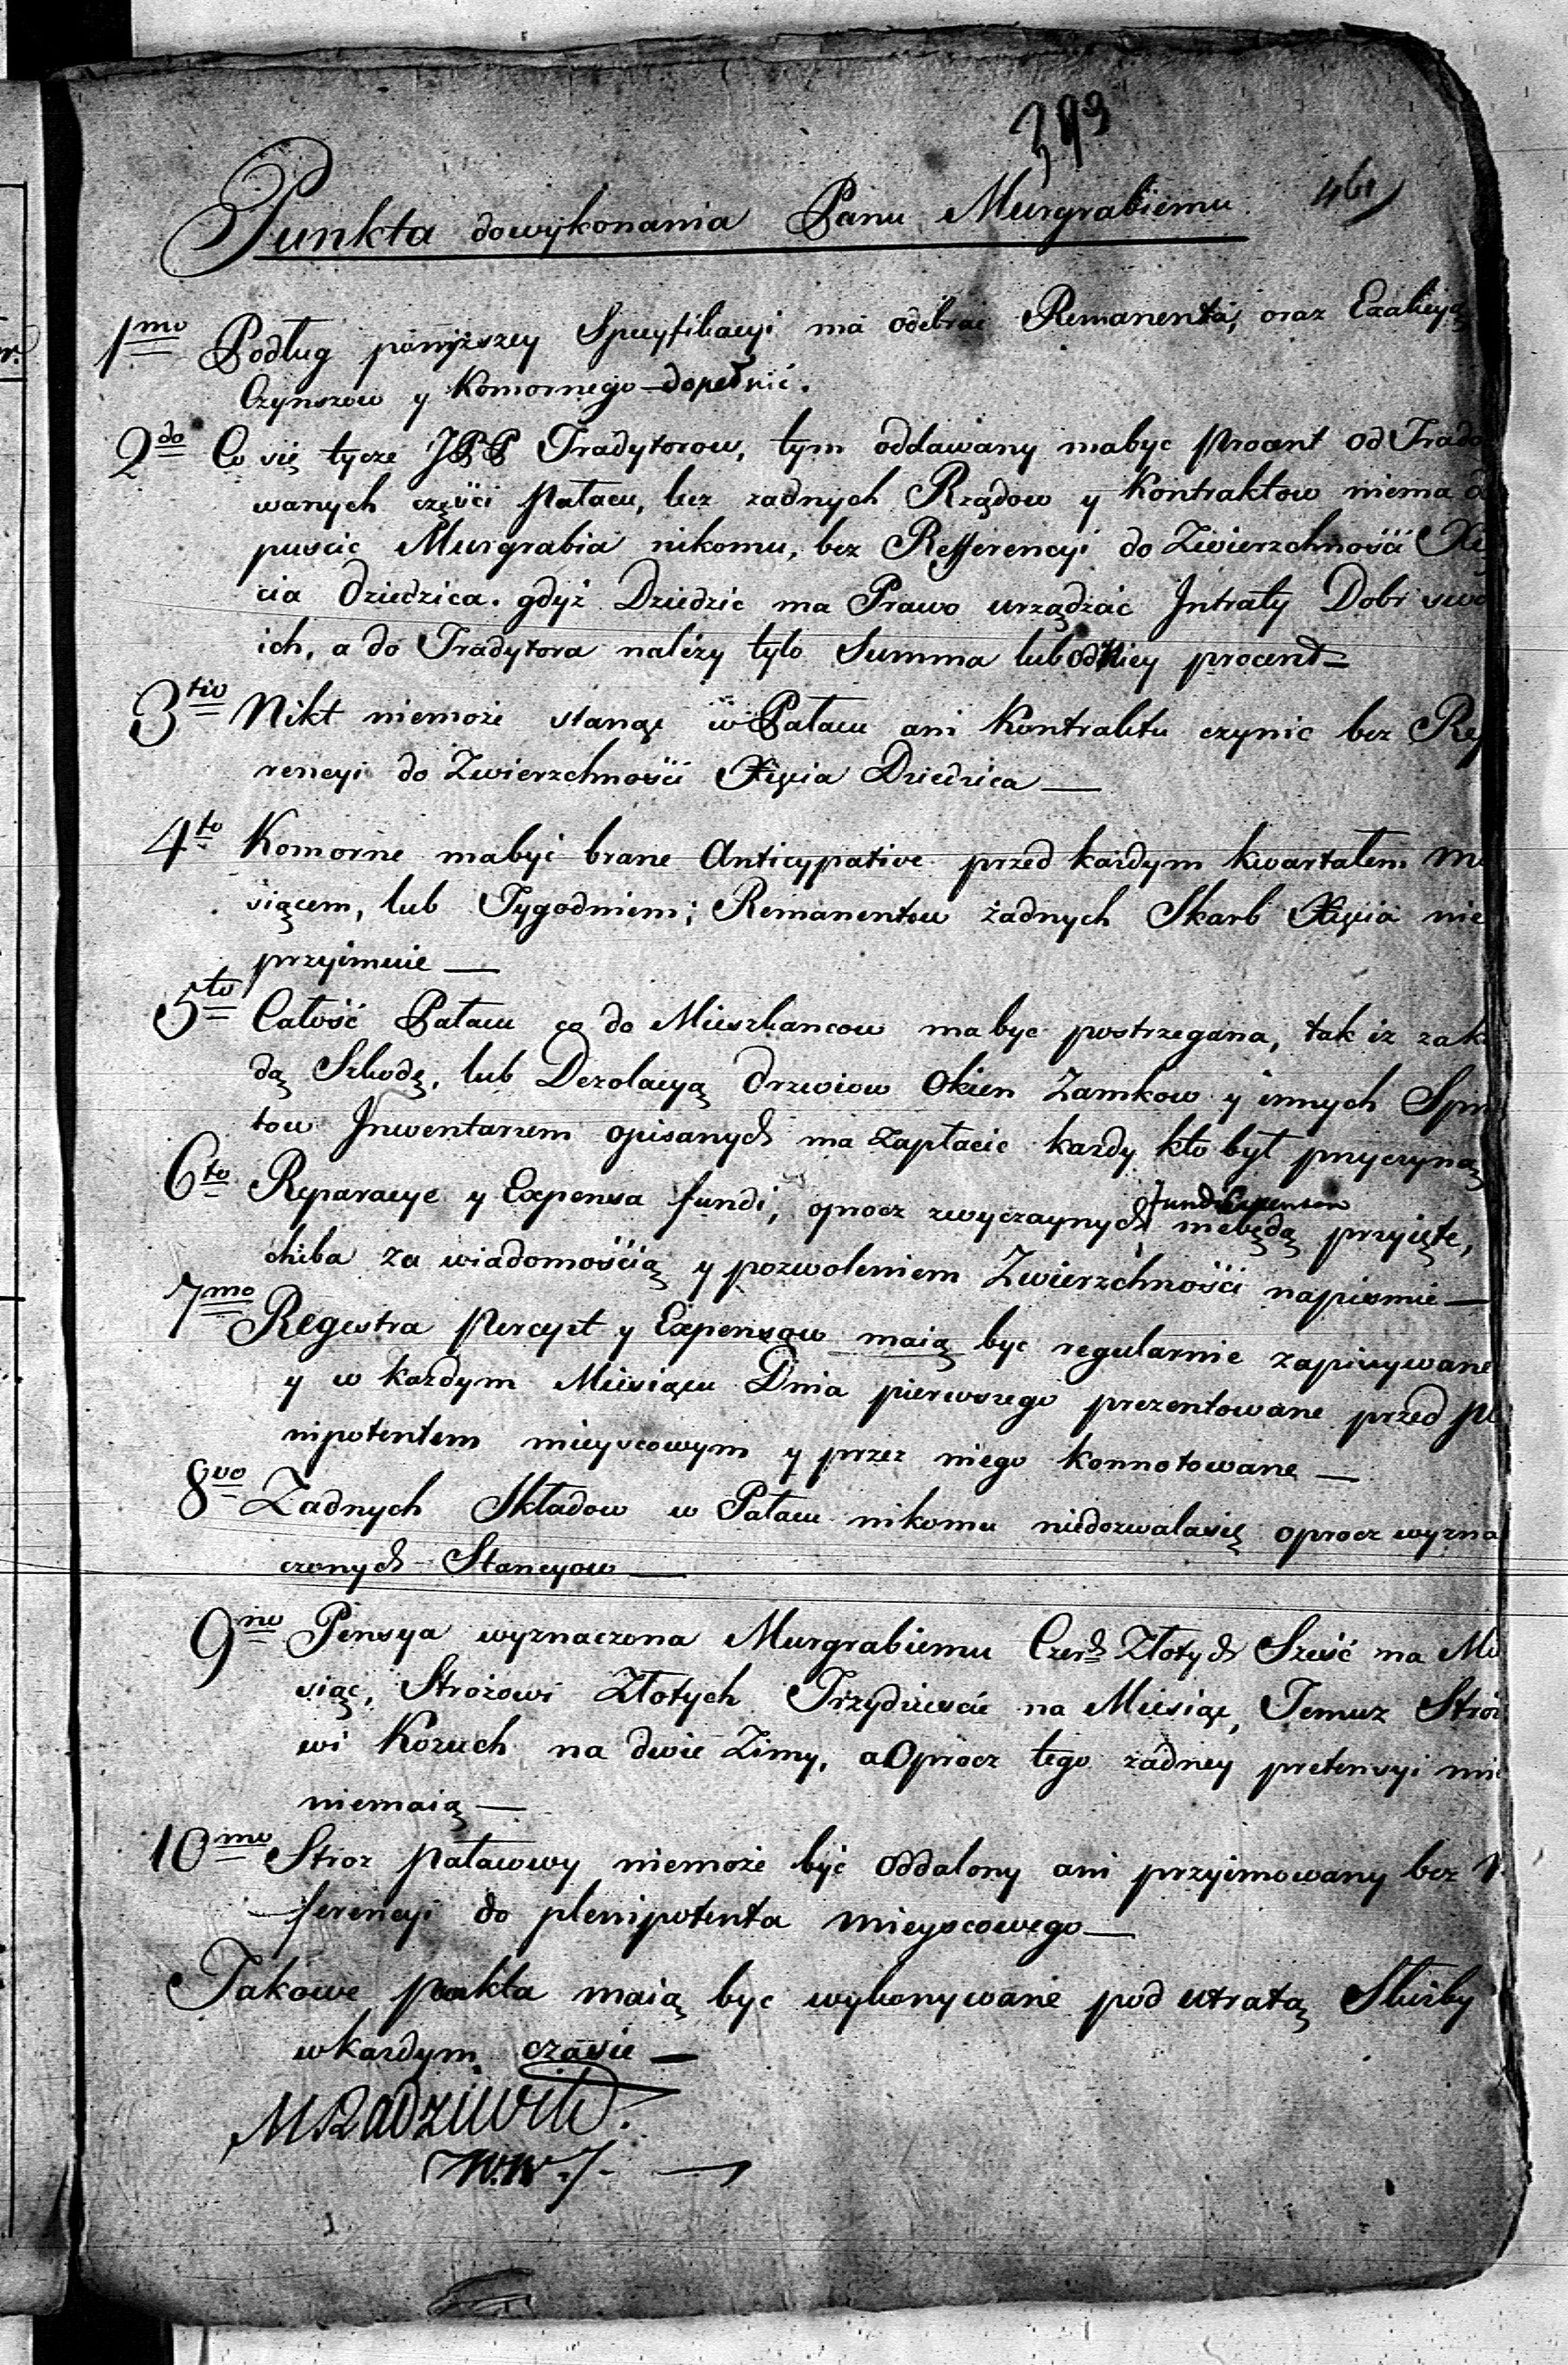 393
461
Punkta dowykonania Panu Murgrabiemu
1mo Podług poniższey Specyfikacyi ma odebrac Remanenta, oraz Exakcyą
Czynszow y Komornego dopełnić.
2do Co się tycze JPP Tradytorow, tym oddawany mabyc procent od Trado
wanych części Pałacu, lecz zadnych Rządow y Kontraktow niema do
puscic Murgrabia nikomu, bez Refferencyi do Zwierzchnośći Xię
cia Dziedzica. gdyż Dziedzic ma Prawo urządzac Intraty Dobr swo
ich, a do Tradytora należy tylo Summa lub odniey procent
3tio Nikt niemoże stanąc w Pałacu ani Kontraktu czynic bez Ref
rencyi do Zwierzchnośći Xięcia Dziedzica
4to Komorne mabyć brane Anticypative przed kazdym kwartałem Mie
siącem, lub Tygodniem; Remanentow żadnych Skarb Xięcia nie
przyimuie
5to Całość Pałacu co do Mieszkancow mabyc postrzegana, tak iz zakaż
dą Szkodę, lub Dezolacyą drzwiow Okien Zamkow y innych Sprzę
tow Inwentarzem opisanych ma zapłacic kazdy kto był przyczyną
6to Reparacye y Expensa fundi, oprocz zwyczaynych fundi Expensow niebędą przyięte,
chiba za wiadomośćią y pozwoleniem Zwierzchnośći napismie
7mo Regestra Percept y Expensow maią byc regularnie zapisywane
y w każdym Miesiącu Dnia pierwszego prezentowane przed Ple
nipotentem mieyscowym y przez niego konnotowane
8vo Zadnych Składow w Pałacu nikomu niedozwalasię oprocz wyzna
czonych Stancyow
9no Pensya wyznaczona Murgrabiemu Czerch Złotych Sześć na Mie
siąc, Strożowi Złotych Trzydzieście na Miesiąc, Temuz Stróżo
wi Kozuch na dwie Zimy, a Oprocz tego żadney pretensyi mie
niemaią
10mo Stroz pałacowy niemoże być oddalony ani przyimowany bez
ferencyi do plenipotenta mieyscowego
Takowe punkta maią byc wykonywane pod utratą Służby
wkazdym czasie
MRadziwiłł
W.W.